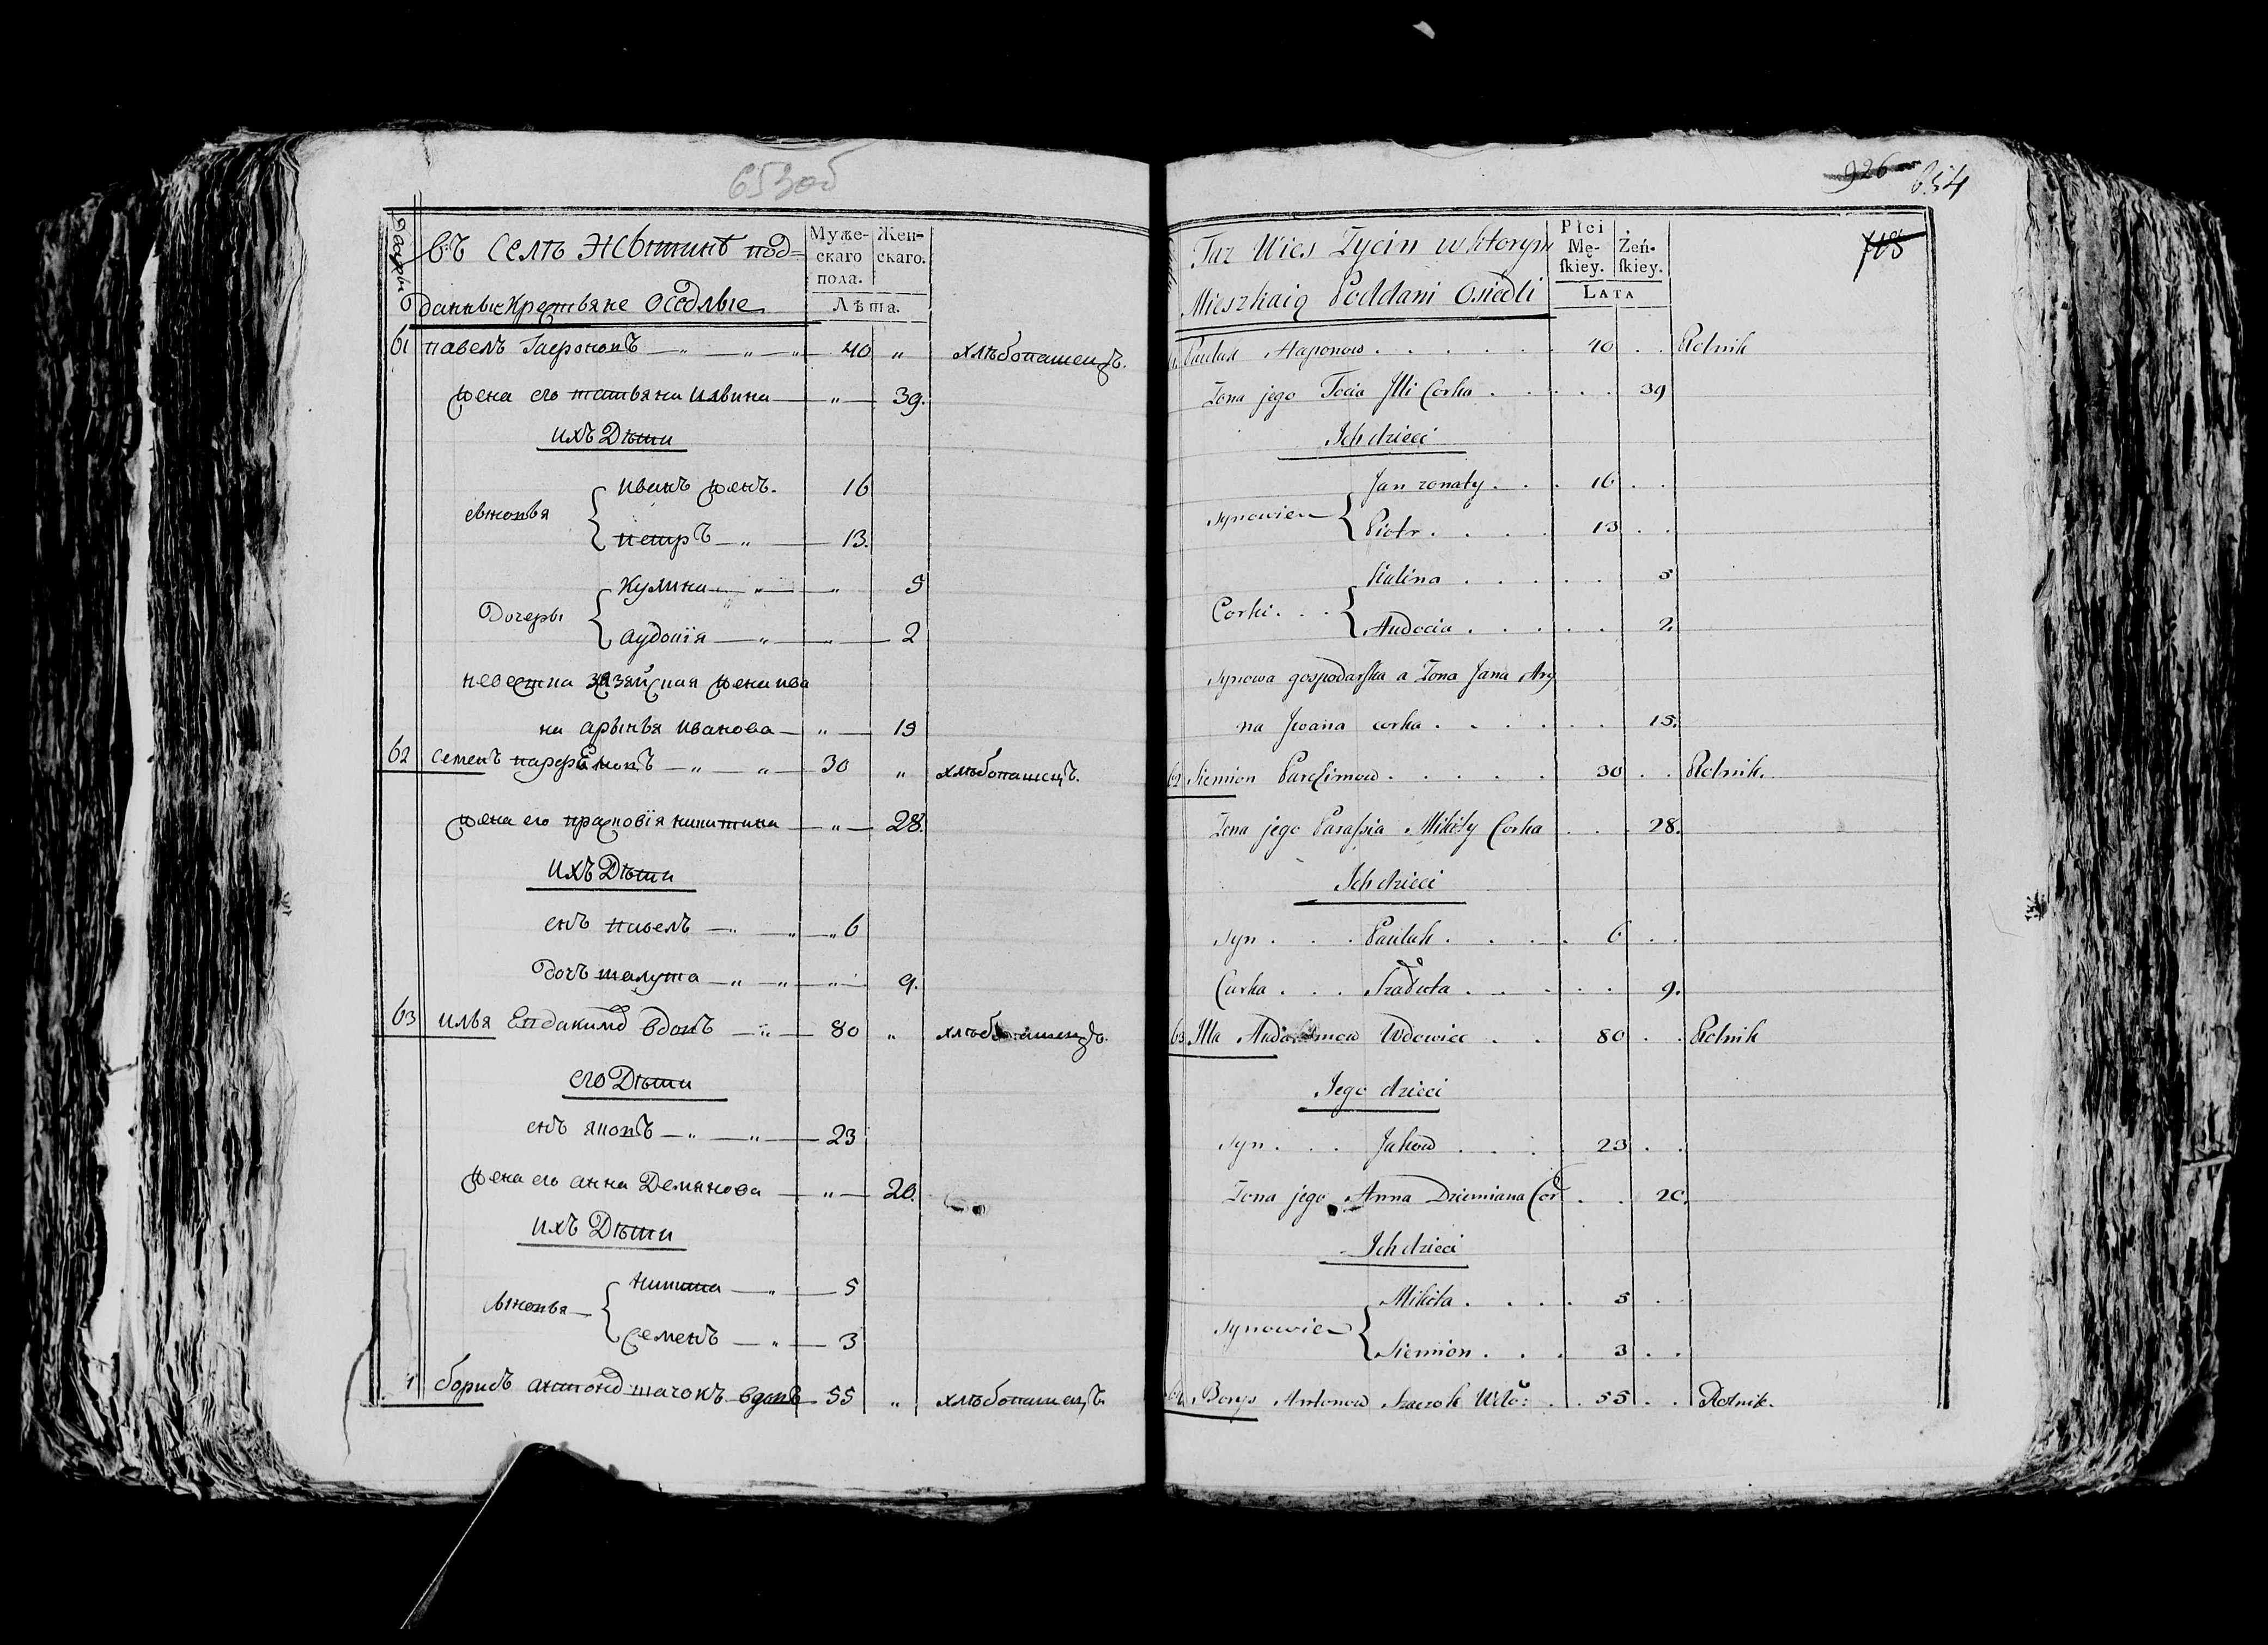 653об
Дворы
въ селѣ Жытинѣ под=
данные Крестьяне Оседлые
Муже-
скаго
пола.
Жен-
скаго.
Лѣта.
61 павелъ — „ — „ — „ — 40 „ хлѣбопашецъ.
жена его татьяна илвина — „ — 39.
ихъ Дѣти
иванъ жен. 16
сыновья
петръ — „ — 13.
Кулина — „ — „ 5
Дочеры
аудоція — „ — „ — 2
невестка хазяйская жена ива
на арынья иванова — „ — 15
62 семенъ парфёмовъ — „ — „ — 30 „ хлѣбопашецъ.
жена его прасковія никитина — „ — 28.
ихъ Дѣти
снъ павелъ — „ — „ 6
дочъ шалута — „ — „ — „ — 9.
63 илья Евдакимо вдовъ — „ — 80 „ хлѣбопашецъ.
его Дѣти
снъ яковъ — „ — „ — 23
жена его анна Демянова — „ — 20.
ихъ Дѣти
никита — „ — 5
сыновья —
Семенъ — „ — 3
борисъ антоно шачокъ вдовъ 55 „ хлѣбопашецъ.
926 654
Taz Wies Zycin w ktorym
Mieszkaią Poddani Osiedli
Płci
Mę-
ſkiey.
Żeń-
ſkiey.
Lata
708
Pauluk Haponow . . . . . . 40 . . Rolnik
Zona jego Tocia Illi Corka . . . . . 39
Ich dzieci
Jan zonaty . . . 16 . .
synowie
Piotr . . . . 13 . .
Kulina . . . . . 5
Corki . . .
Audocia . . . . . 2.
Synowa gospodarſka a Zona Jana Ary
na Jwana corka . . . . . . 15.
62 Siemion Parfimow . . . . . 30 . . Rolnik.
Zona jego Paraſsia Mikity Corka . . . 28.
Ich dzieci
syn . . . Pauluk . . . . 6 . .
Curka . . . Szaluta . . . . . 9.
63 Illa Wdowiec . . 80 . . Rolnik
Jego dzieci
syn . . . Jakow . . . . 23 . .
Zona jego Anna Dziemiana Cor . . 20.
Ich dzieci
Mikita . . . . 5 .
synowie
Siemion . . . 3 . .
64 Borys Antonow Szaczok Wdo: . . 55 . . Rolnik.